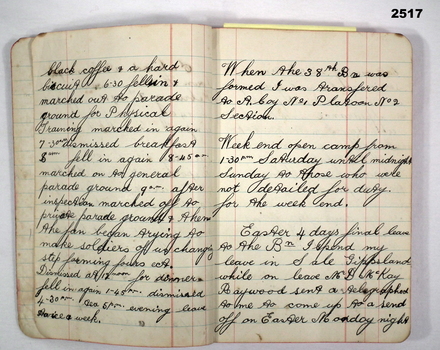 2517
black coffee & a hard
biscuit 6.30 fell in &
marched out to parade
ground for Physical
Training marched in again
7-30 am dismissed breakfast
8 am fell in again 8-45 am
marched on to general
parade ground 9 am after
inspection marched off to
private parade ground & then
the fun began trying to
make soldiers of us change
step forming fours ect.
Dismised at 12 noon for dinner
fell in again 1-45 dismissed
4-30 tea 5 pm evening leave
twice a week.
When the 38th Bn was
formed I was transfered
to A coy No 1 Platoon No 2
Section.
Week end open camp from
1-30 am Saturday until midnight
Sunday to those who were
not detailed for duty
for the week end.
Easter 4 days final leave
to the Bn I spend my
leave in Sale Gippsland
while on leave Mc Kay
Raywood sent a telegraphed
to me to come up to a send
off on Easter Monday night